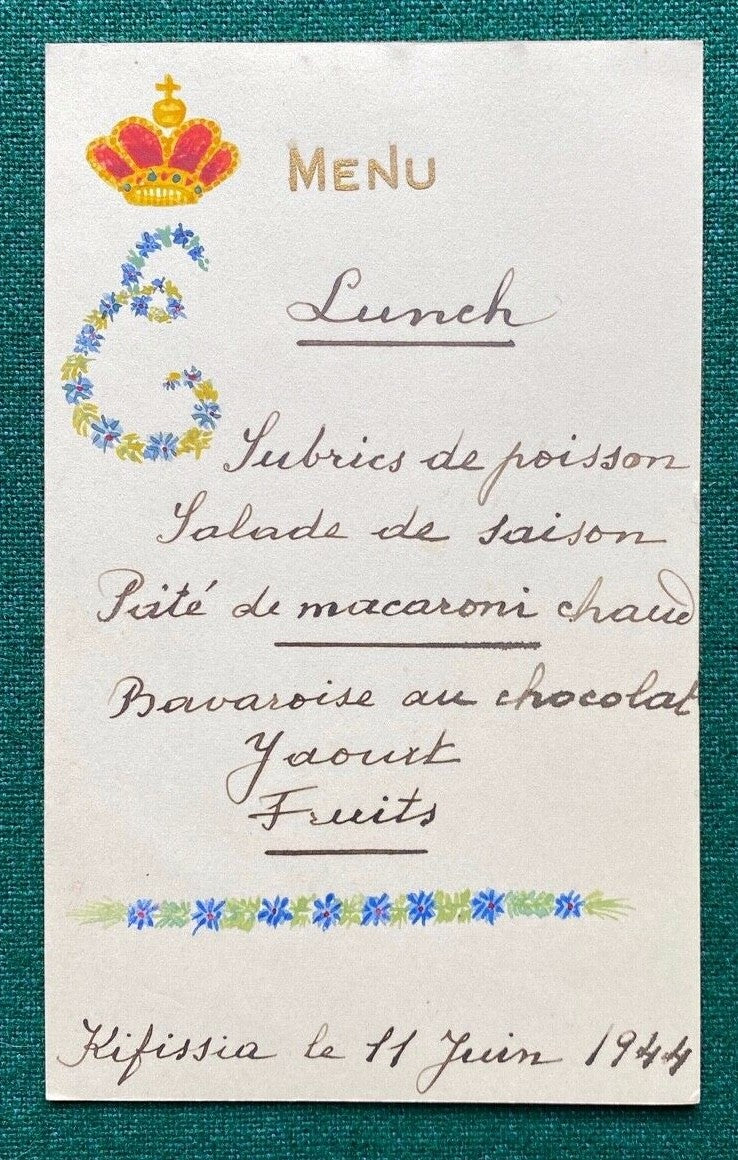 MENU
E
Lunch
Subrics de poisson
Salade de saison
Pâté de macaroni chaud
Bavaroise au chocolat
Yaourt
Fruits
Kifissia le 11 Juin 1944